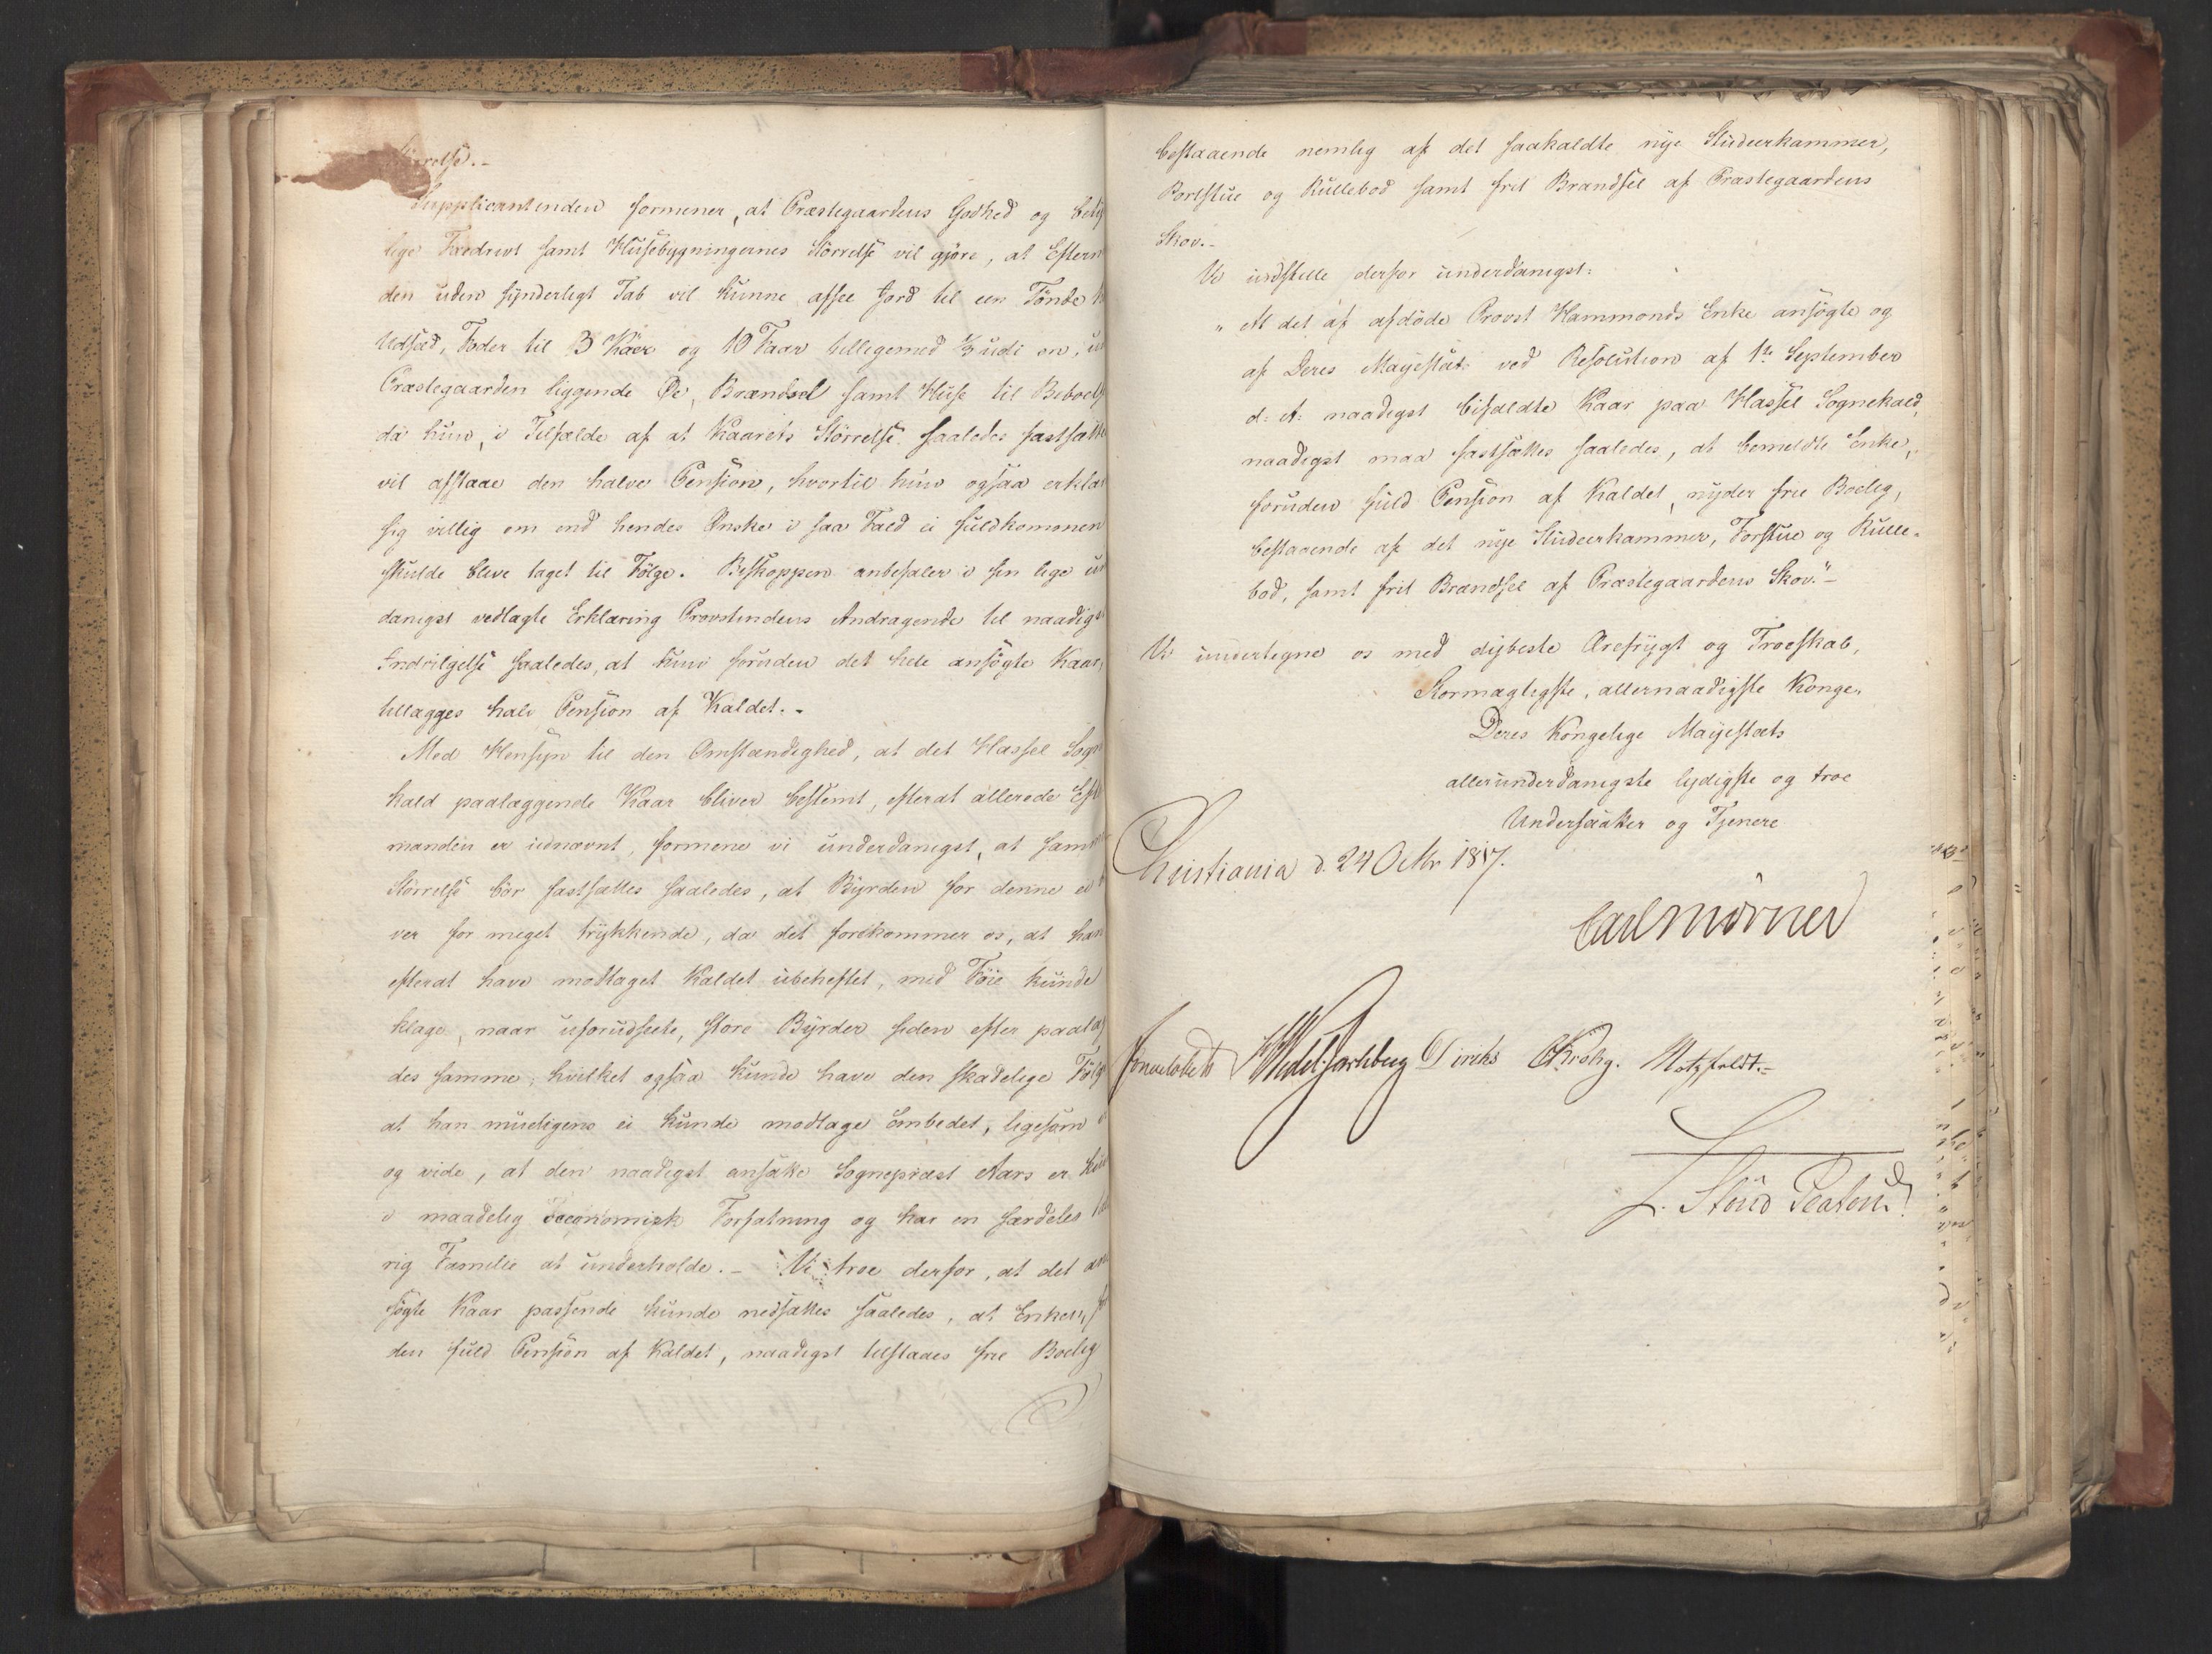 Supplicantinden formener, at Præstegaardens Godhed og
lige Jordrivt samt Husebygningernes Störrelse vil gjöre, at Efterm
den uden synderligt Tab vil kunne afsee Jord til een Tönde
Udsæd, Foder til 3 Köer og 10 Faar tilligemed 3 udi en,
Præstegaarden liggende Öe, Brændsel samt Huse til Beboels
da hun, i Tilfælde af at Kaarets Störrelse saaledes fastsætte
vil afstaae den halve Pension, hvortil hun ogsaa erklæ
sig villig om end hendes Önske i saa Fald ei fuldkommen
skulde blive taget til Fölge. Biskoppen anbefaler i sin lige un
danigst vedlagte Erklæring Provstindens Andragende til naadigs
Indvilgelse saaledes, at hun foruden det hele ansögte Kaar,
tillægges halv Pension af Kaldet.-
Med Hensyn til den Omstændighed, at det Hassel Sogn
kald paalæggende Kaar bliver bestemt, efterat allerede Eft
manden er udnævnt, formene vi underdanigst, at sam
Störrelse bör fastsættes saaledes, at Byrden for denne ei
ver for meget trykkende, da det forekommer os, at han
efterat have modtaget Kaldet ubeheftet, med Föie kunde
klage, naar uforudseete, store Byrder siden efter paalag
des samme, hvilket ogsaa kunde have den skadelige Fölg
at han mueligens ei kunde modtage Embedet, ligesom
og vide, at den naadigst ansatte Sognepræst Aars er
i maadelig oeconomisk Forfatning og har en særdeles
rig Familie at underholde.- Vi troe derfor, at det an
sögte Kaar passende kunde nedsættes saaledes, at Enken, for
den fuld Pension af Kaldet, naadigst tilstaaes frie Boelig
bestaaende nemlig af det saakaldte nye Studeerkammer,
Borstue og Rullebod samt frit Brændsel af Præstegaardens
Skov.-
Vi indstille derfor underdanigst:
"At det af afdöde Provst Hammonds Enke ansögte og
af Deres Majestæt ved Resolution af 1te September
d: A: naadigst bifaldte Kaar paa Hassel Sognekald,
naadigst maa fastsættes saaledes, at bemeldte Enke,
foruden fuld Pension af Kaldet, nyder frie Boelig,
bestaaende af det nye Studeerkammer, Forstue og Rulle-
bod, samt frit Brændsel af Præstegaardens Skov."-
Vi undertegne os med dybeste Ærefrygt og Troeskab,
Stormægtigste, allernaadigste Konge,
Deres Kongelige Majestæts
allerunderdanigste lydigste og troe
Undersaatter og Tjenere
Christiania d. 24 Octbr 1817.
Carl Mörner
Sommelhielm HWedel Jarlsberg Diriks CKrohg. Motzfeldt.-
L. Stoud Platou.